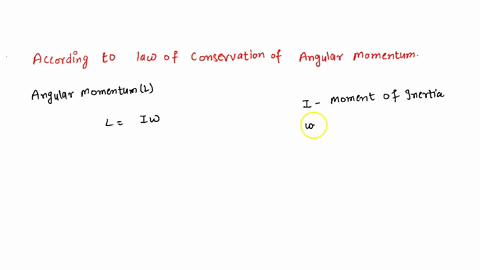 According to law of conservation of Angular Momentum.
Angular Momentum(L)
L = Iω
I - Moment of Inertia
ω